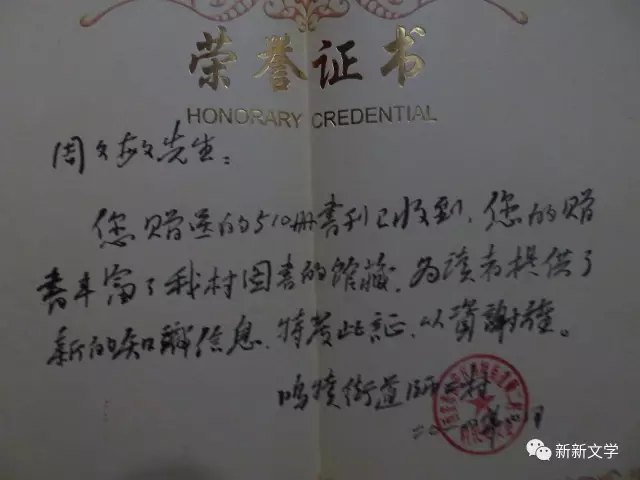 荣誉证书
HONORARY CREDENTIAL
周文敏先生：
您赠送的510册書刊已收到，您的赠
書丰富了我村图書的馆藏，为读者提供了
新的知識信息，特发此証，以資謝
鸣犊街道
新新文学